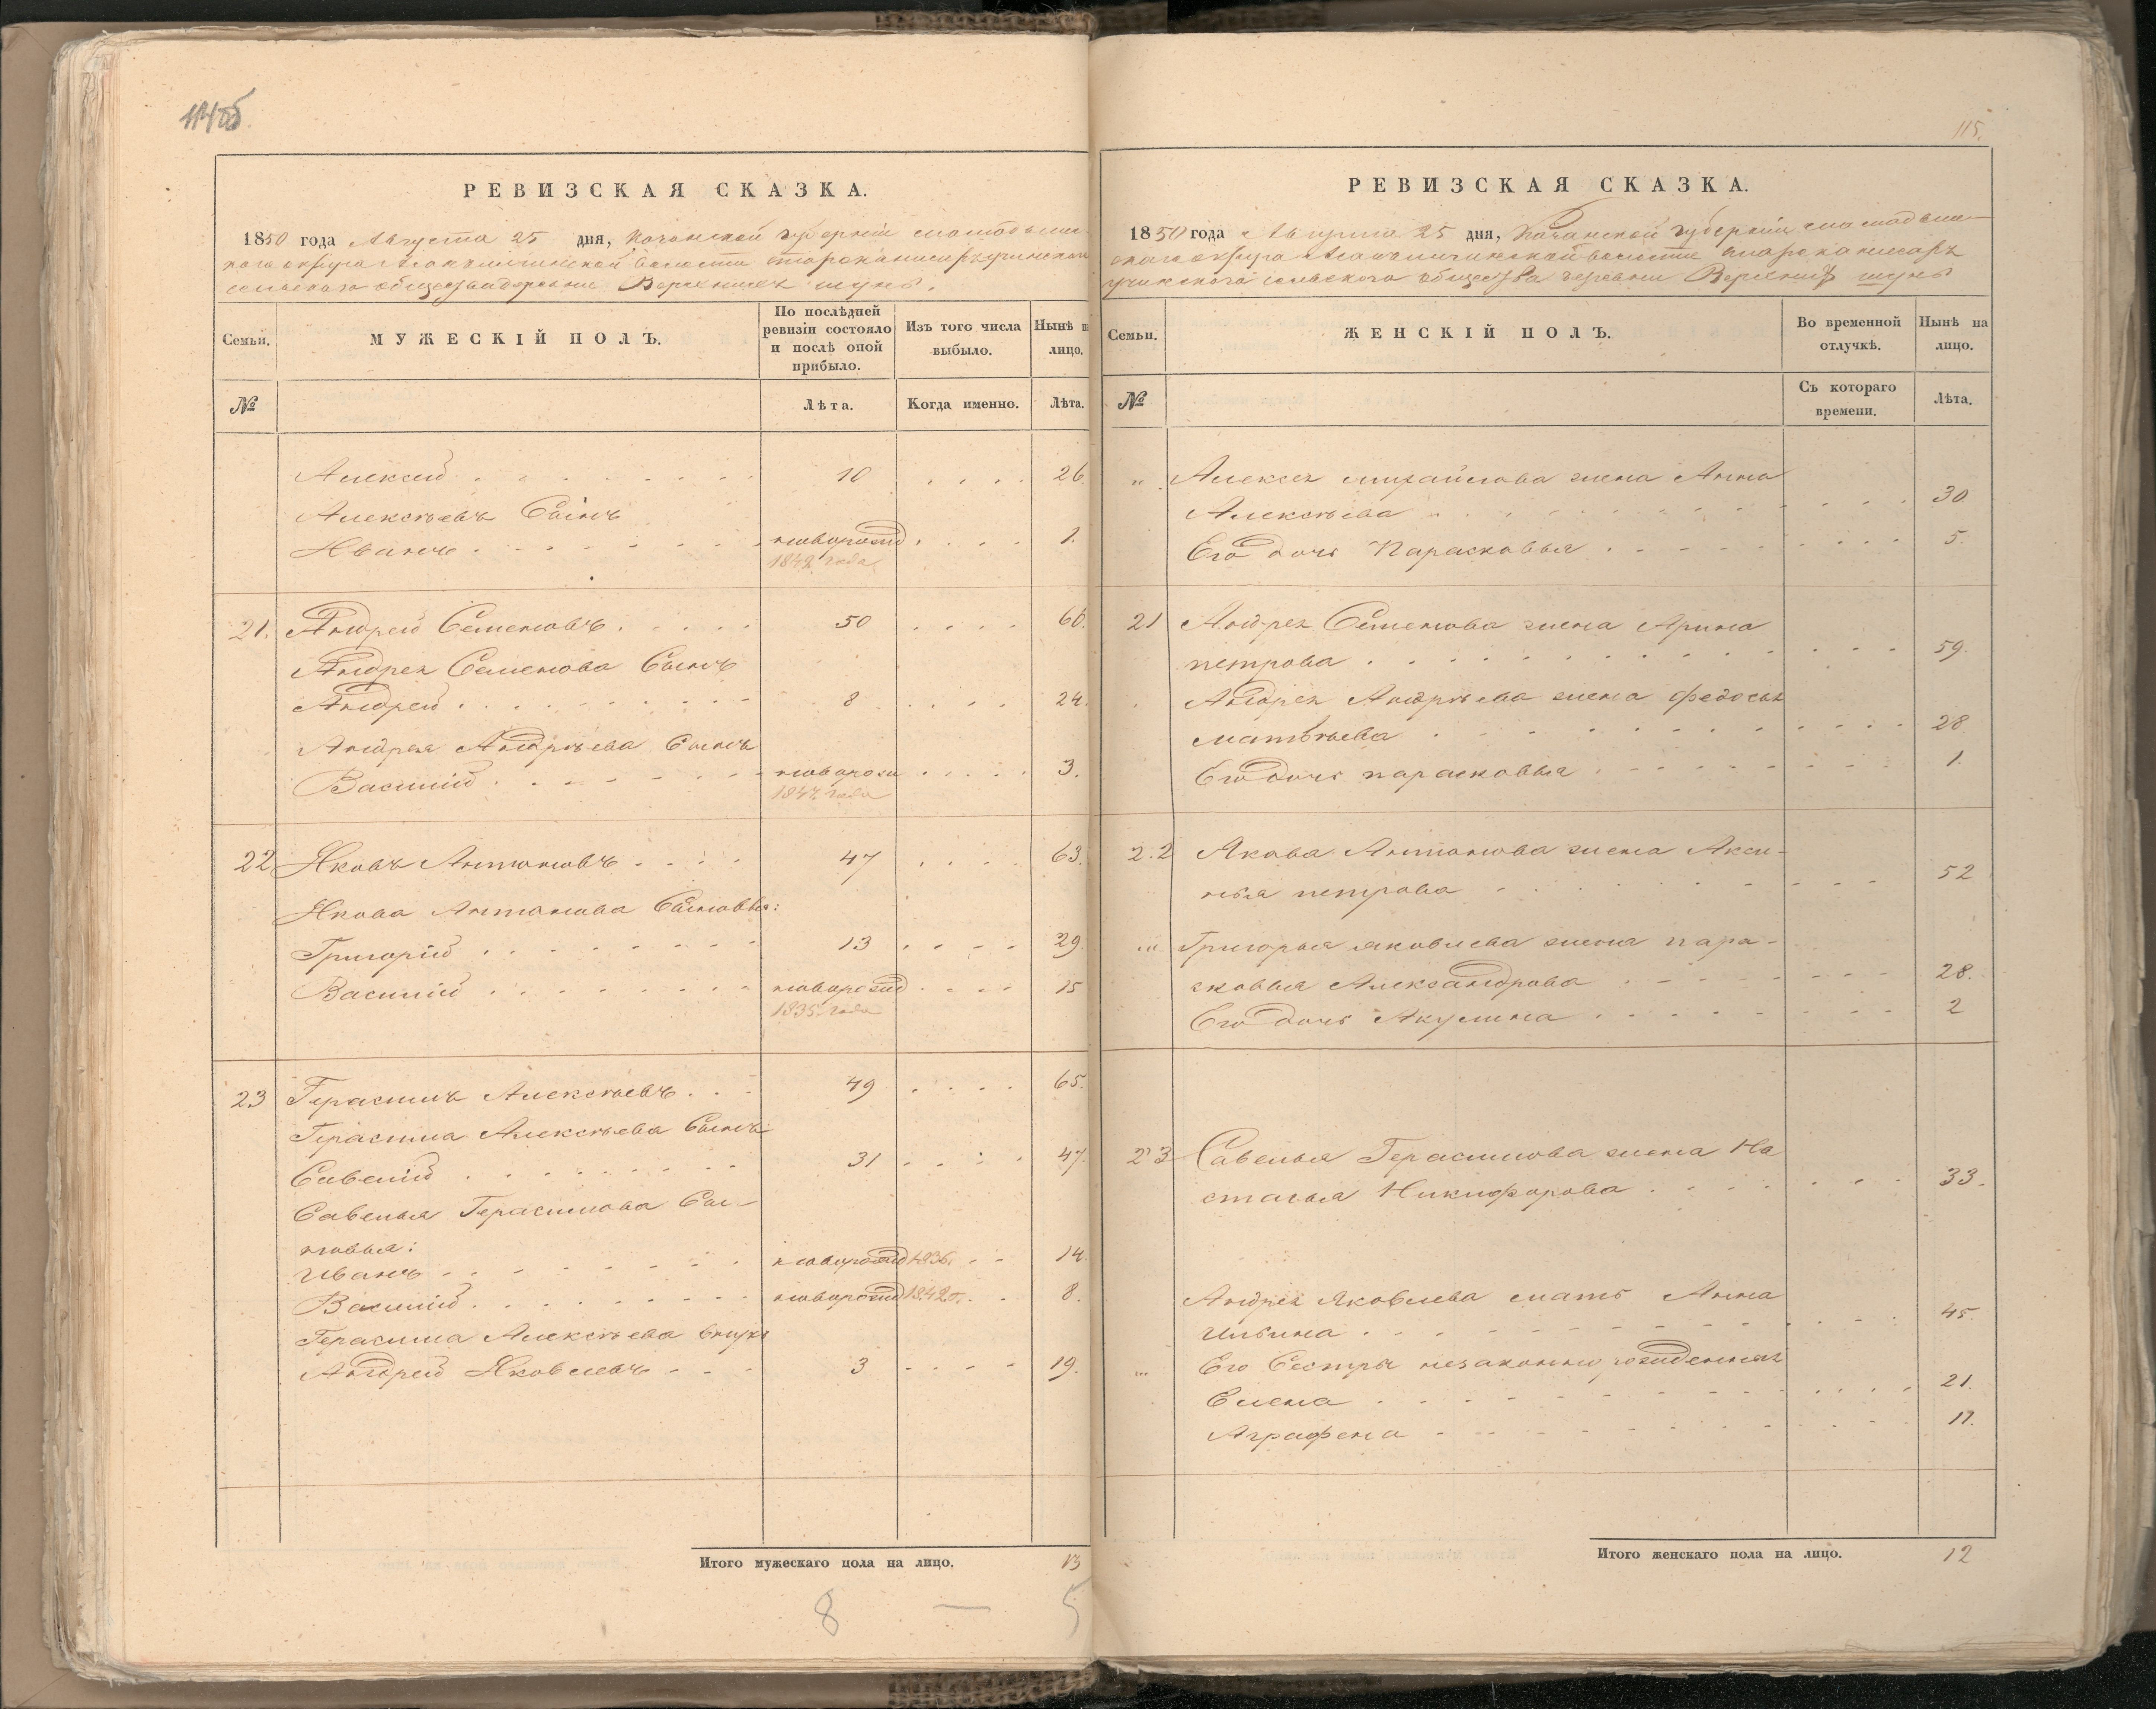 114об.
РЕВИЗСКАЯ СКАЗКА.
1850 года Августа 25 дня, Казанской губерніи мамадышс-
каго округа волости
сельскаго общества деревни Верхнихъ шунъ.
Семьи.
МУЖЕСКІЙ ПОЛЪ.
По послѣдней ревизіи состояло и послѣ оной прибыло.
Изъ того числа выбыло.
Нынѣ на лицо.
№
Лѣта.
Когда именно.
Лѣта.
Алексей . . . . . . 10 . . . . 26.
Алексѣевъ Сынъ
Иванъ . . . . . . новорожд . . . . 1.
1849 года
21. Андрей Семеновъ . . . . . 50 . . . . 66.
Андрея Семенова Сынъ
Андрей . . . . . . . . 8 . . . . 24.
Андрея Андрѣева Сынъ
Василій . . . . . . новорож . . . . 3.
1847 года
22 Яковъ Антоновъ . . . . 47 . . . . 63.
Якова Антонова Сыновья:
Григорій . . . . . . . 13 . . . . 29.
Василій . . . . . . . новорожд . . . . 15
1835 года
23 Герасимъ Алексѣевъ . . . 49 . . . . 65.
Герасима Алексѣева Сынъ
Савелій . . . . . . . 31 . . . . 47.
Савелья Герасимова Сы-
новья:
Иванъ . . . . . . . новорожд 1836 . . 14.
Василій . . . . . . . новорожд 1842 г. . . 8.
Герасима Алексѣева внукъ
Андрей Яковлевъ . . . 3 . . . . 19.
Итого мужескаго пола на лицо. 13
8 — 5
115.
РЕВИЗСКАЯ СКАЗКА.
1850 года Августа 25 дня, Казанской губерніи мамадыш-
скаго округа волости
сельского общества деревни Верхнихъ шунъ
Семьи.
ЖЕНСКІЙ ПОЛЪ.
Во временной отлучкѣ.
Нынѣ на лицо.
№
Съ котораго времени.
Лѣта.
" Алексея михайлова жена Анна
Алексѣева . . . . . . 30
Его дочь Парасковья . . . . . . 5.
21 Андрея Семенова жена Арина
петрова . . . . . . 59.
Андрея Андрѣева жена Федосья
матвѣева . . . . . . 28
Его дочь парасковья . . . . . . 1.
22 Якова Антонова жена Акси-
нья петрова . . . . . . 52
" Григорья яковлева жена пара-
сковья Александрова . . . . . . 28.
Его дочь Акулина . . . . . . 2
23 Савелья Герасимова жена На
стасья Никифорова . . . . . . 33.
Андрея Яковлева мать Анна
Ильина . . . . . . 45
" Его Сестры незаконно рожденныя
Елена . . . . . . 21.
Аграфена . . . . . . 17.
Итого женскаго пола на лицо. 12